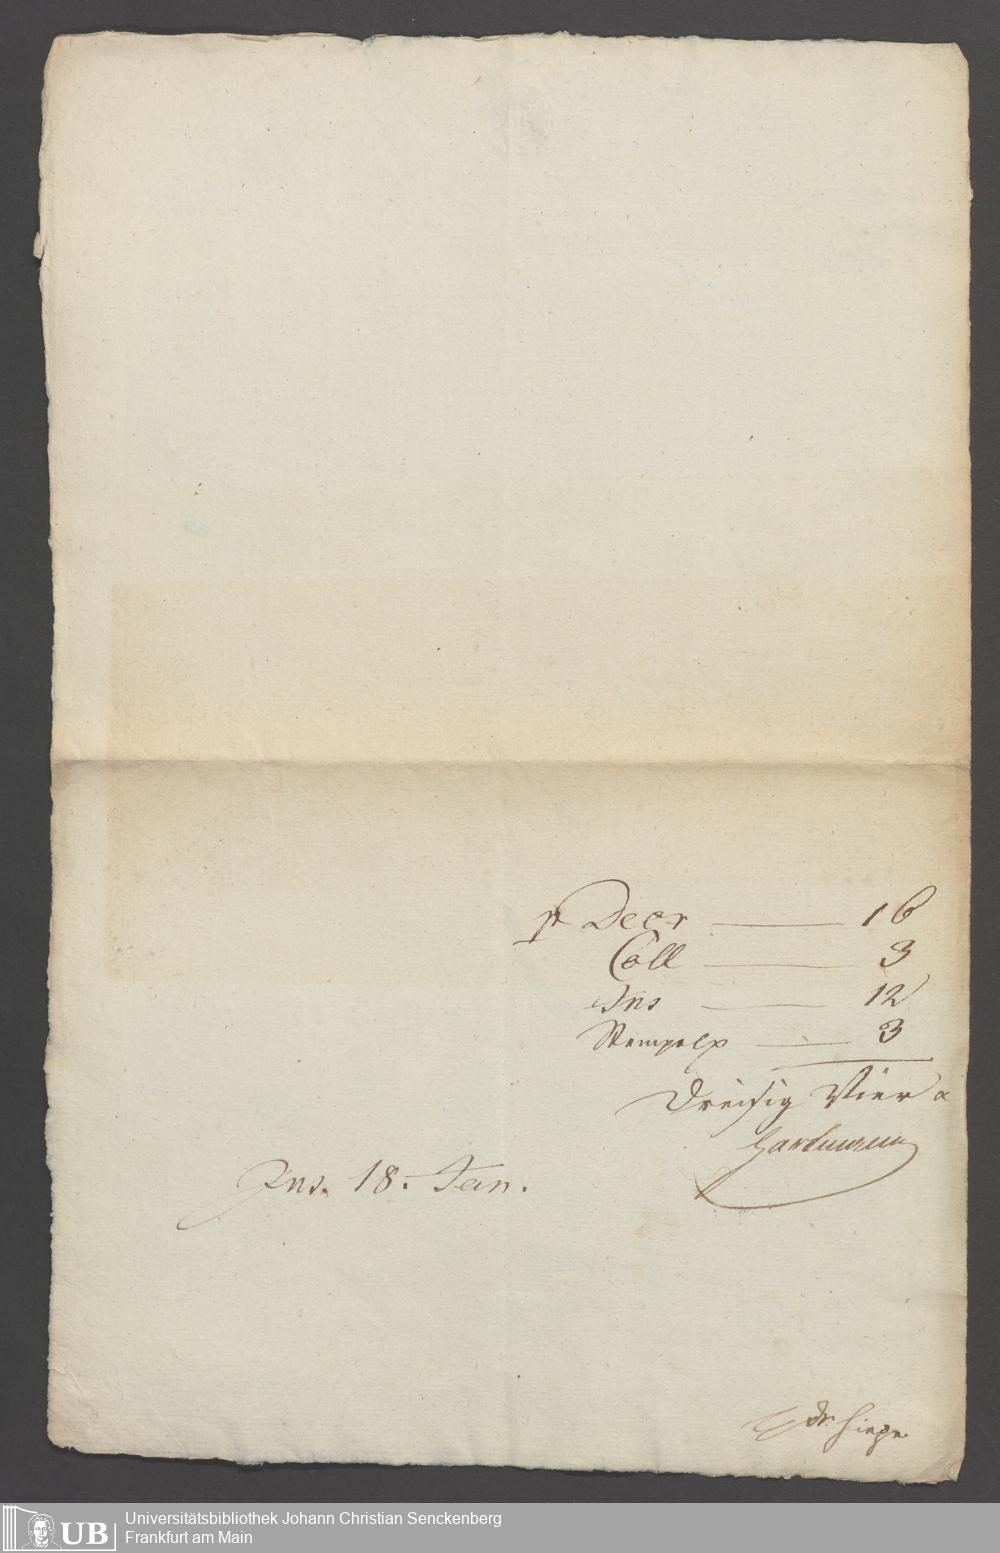 pr Decr — 16
Coll — 3
Ins — 12
Stempelp — 3
Dreisig Vier x
Hartmann
Ins. 18. Jan.
Dr.
Universitätsbibliothek Johann Christian Senckenberg
Frankfurt am Main
UB